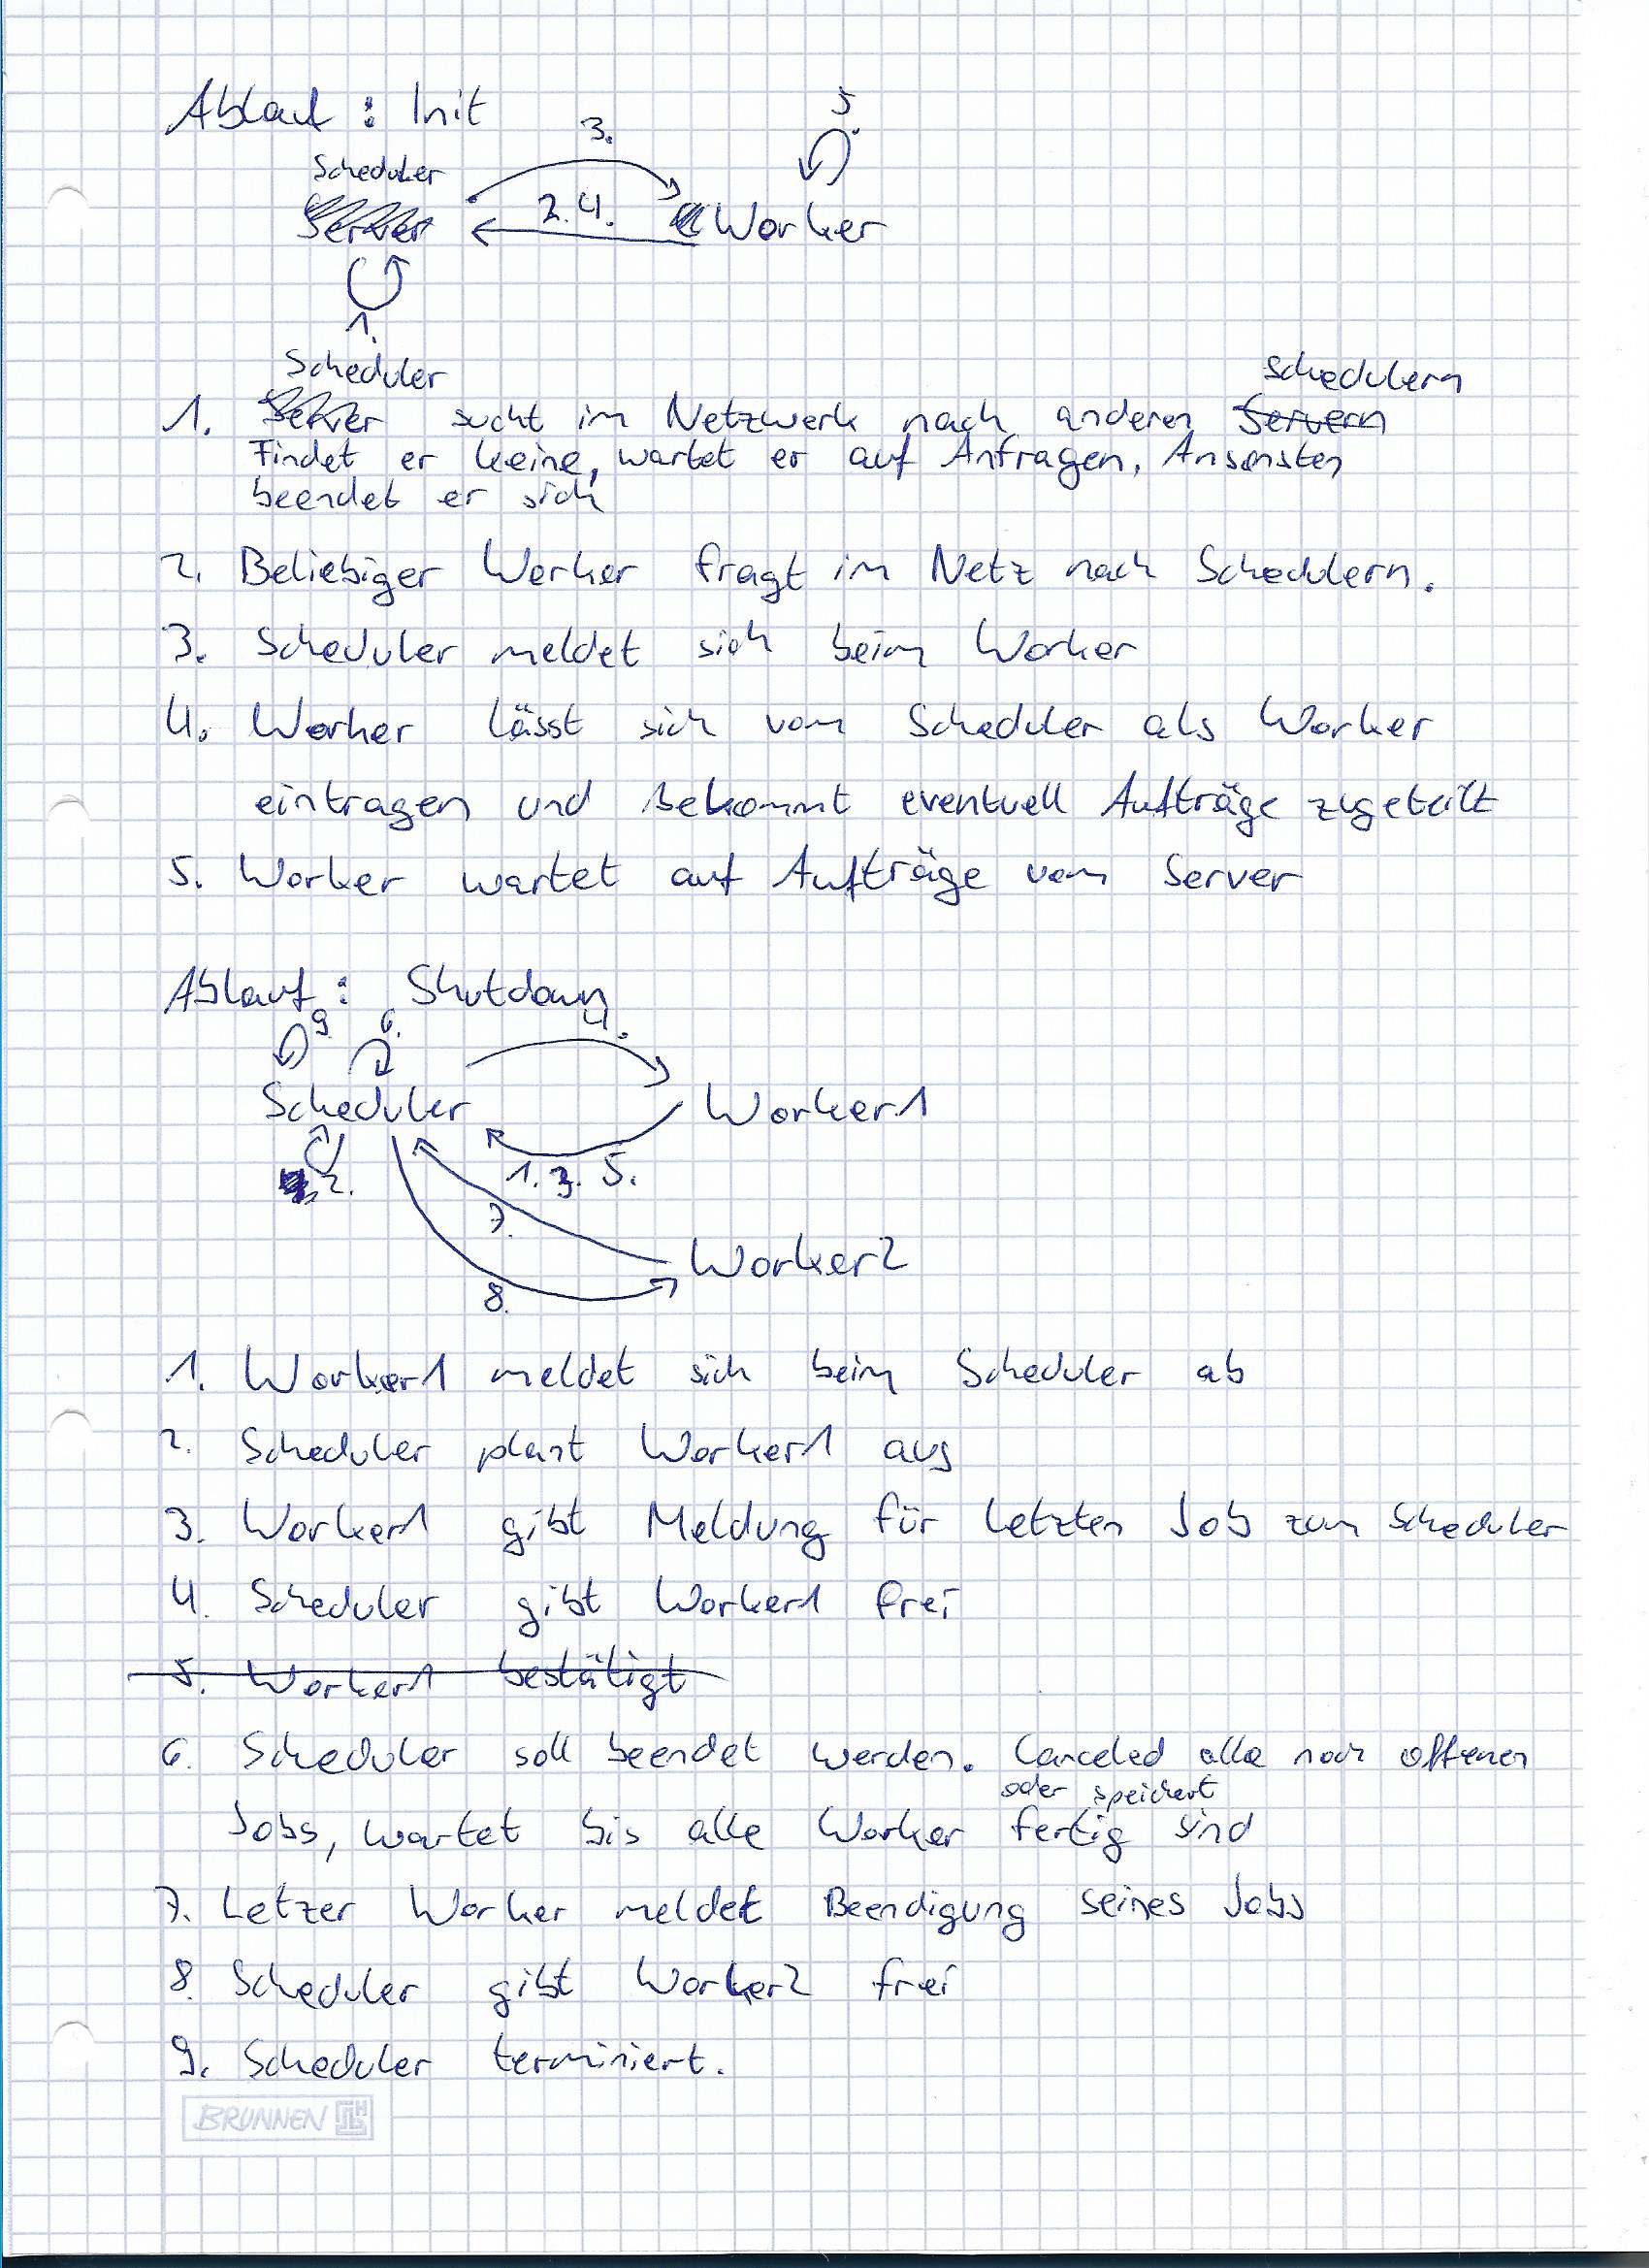 Ablauf : Init
5.
3.
Scheduler
Server
2. 4.
Worker
1.
Scheduler schedulern
1. Server sucht im Netzwerk nach anderen Servern
Findet er keine, wartet er auf Anfragen, Ansonsten
beendet er sich
2. Beliebiger Worker fragt im Netz nach Schedulern.
3. Scheduler meldet sich beim Worker
4. Worker lässt sich vom Scheduler als Worker
eintragen und Bekommt eventuell Aufträge zugeteilt
5. Worker wartet auf Aufträge vom Server
Ablauf : Shutdown
9. 6. 4.
Scheduler Worker1
2. 1. 3. 5.
7.
Worker2
8.
1. Worker1 meldet sich beim Scheduler ab
2. Scheduler plant Worker1 aus
3. Worker1 gibt Meldung für letzten Job zum Scheduler
4. Scheduler gibt Worker1 frei
5. Worker1 bestätigt
6. Scheduler soll beendet werden. Canceled alle noch offenen
oder speichert
Jobs, wartet bis alle Worker fertig sind
7. Letzer Worker meldet Beendigung seines Jobs
8. Scheduler gibt Worker2 frei
9. Scheduler terminiert.
BRUNNEN